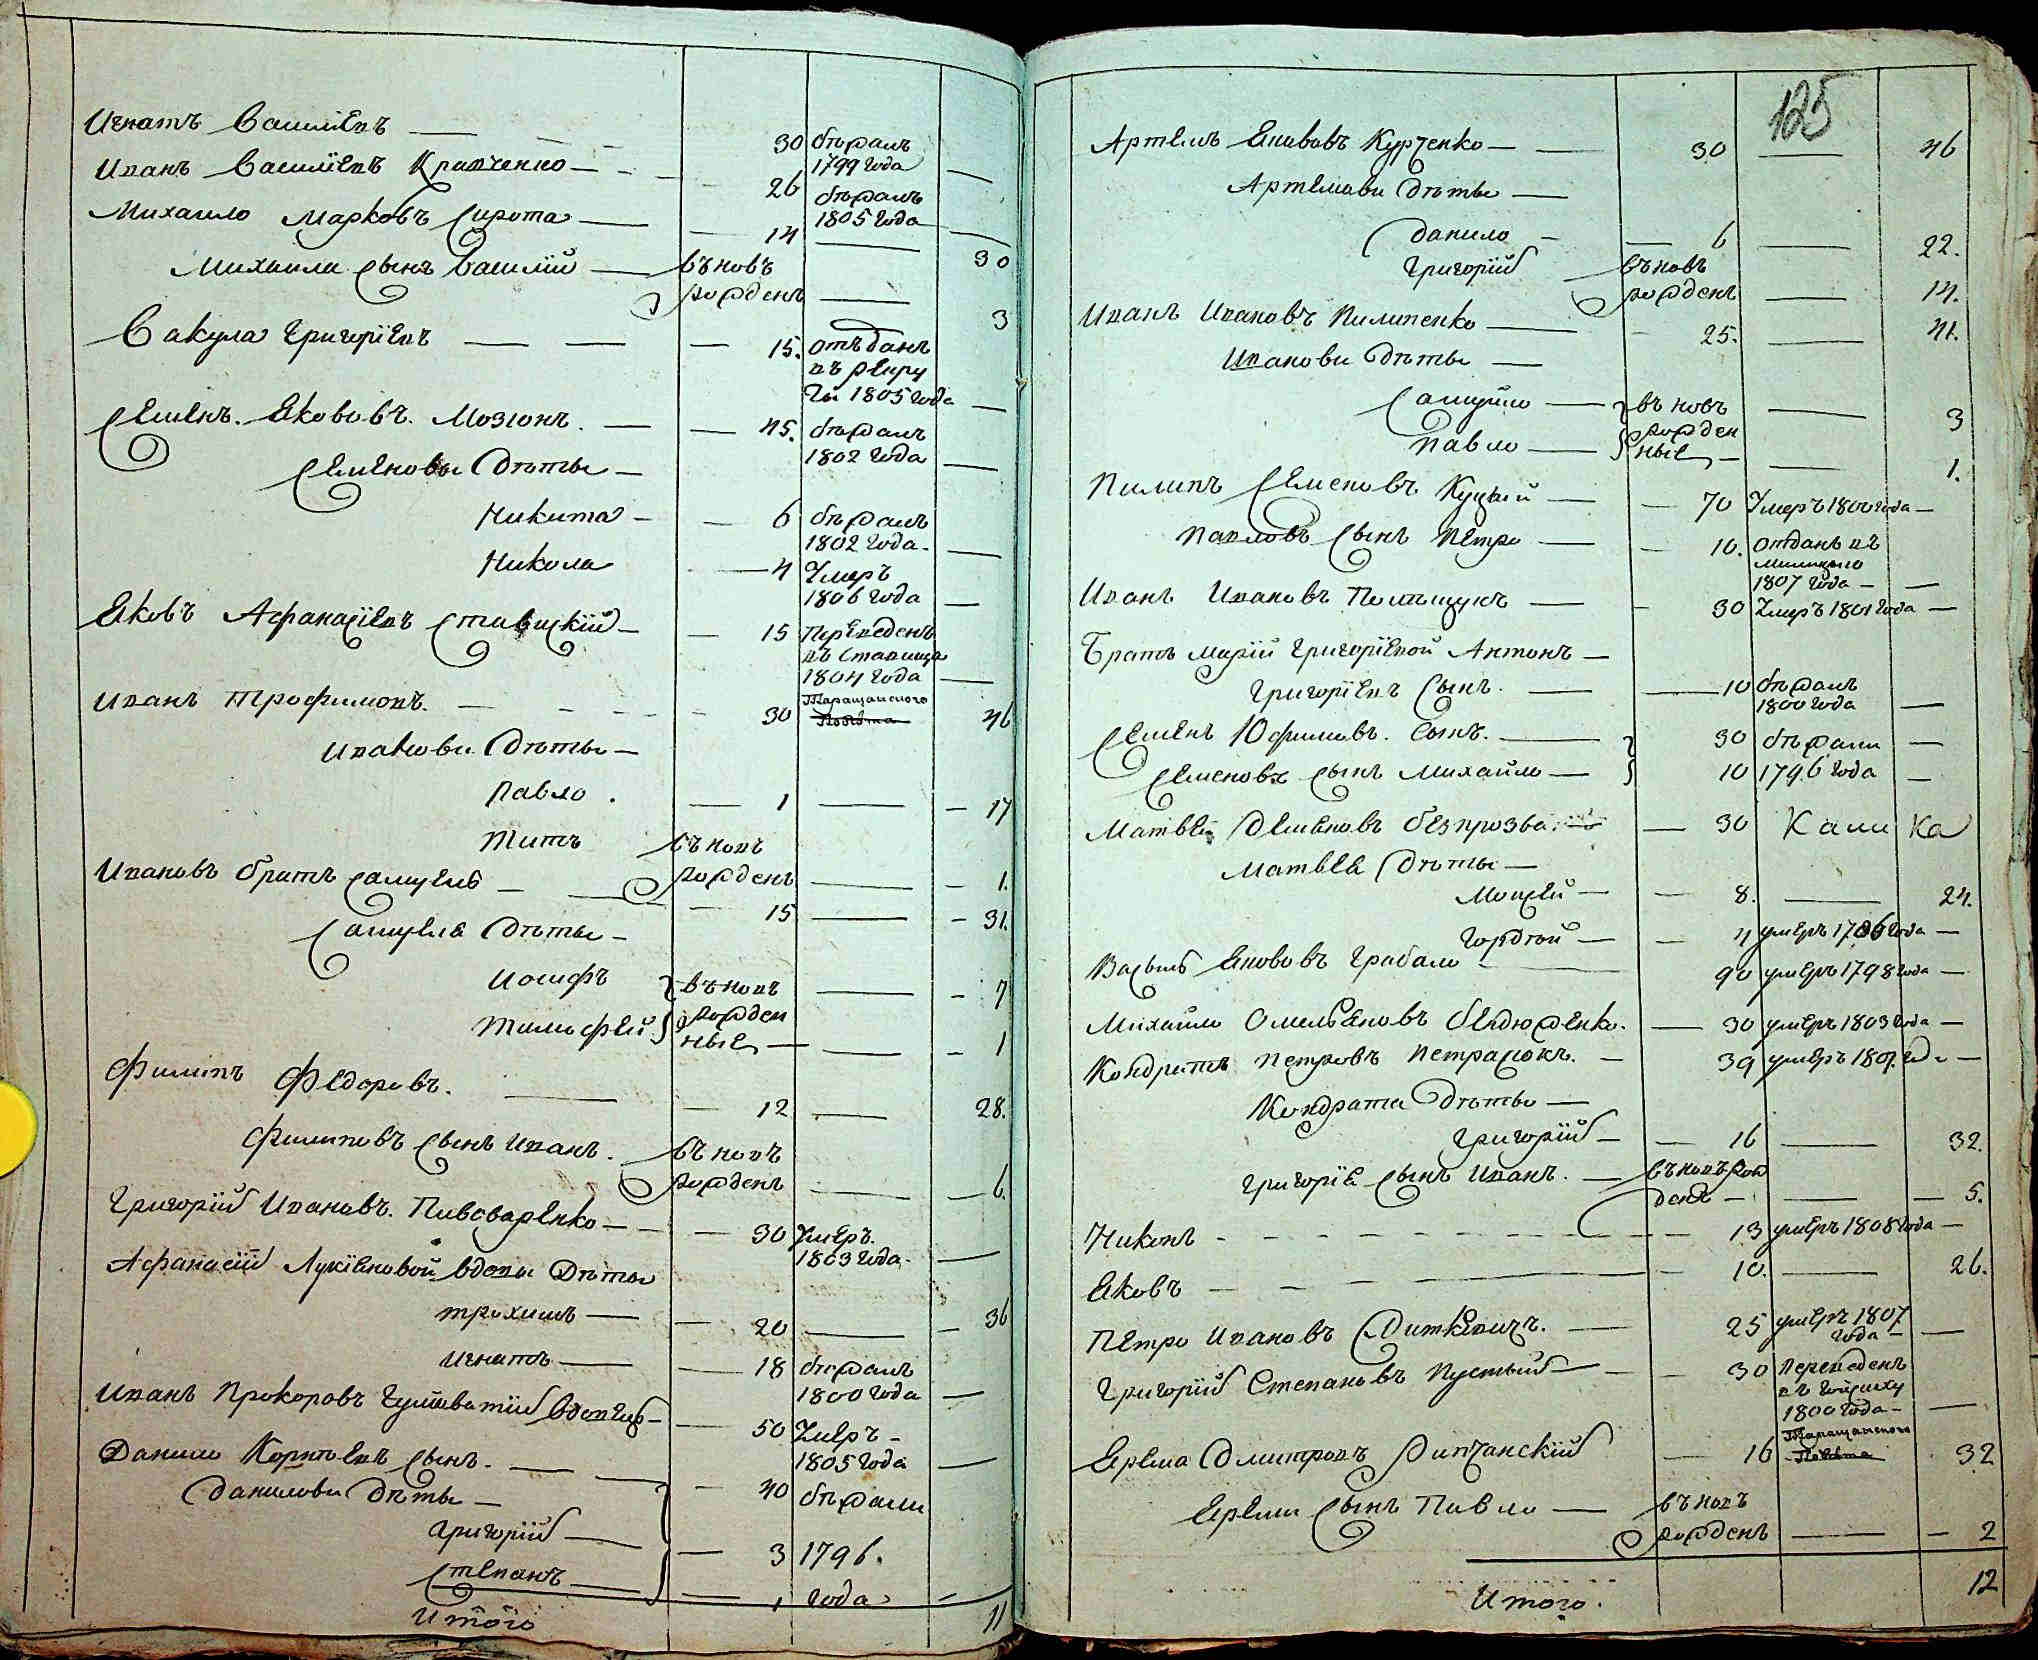 Игнатъ Василіевъ — 30 бѣжалъ
1799 года —
Иванъ Василіевъ Кравченко — 26 бѣжалъ
1805 года —
Михайло Марковъ Сирота — 14 — 30
Михаила сынъ Василій — въновь
рожденъ — 3
Вакула Григоріевъ — 15. отъданъ
въ рекру
ты 1805 года —
Семенъ Якововъ Мозюнъ — 45. бѣжалъ
1802 года —
Семеновы дѣты —
Никита — 6 бѣжалъ
1802 года —
Никола — 4 Умеръ
1806 года —
Яковъ Афанасіевъ Ставискій — 15 Переведенъ
въ Ставища
1804 года —
Таращанского
Повѣта
Иванъ Трофимовъ. — 30 46
Иванови дѣты —
Павло. — 1 — 17
Титъ въновъ
рожденъ — 1.
Ивановъ братъ Самуилъ — 15 — 31.
Самуила дѣты —
Иосифъ } въновъ — 7
Тимофей } рожден
ные — 1
Филипъ Федоровъ. — 12 — 28.
Филиповъ сынъ Иванъ. въновъ
рожденъ — 6.
Григорій Ивановъ. Пивоваренко — 30 Умеръ
1803 года —
Афанасій Лукіяновой вдовы Дѣты
Трохимъ — 20 — 36
Игнатъ — 18 бѣжалъ
1800 года —
Иванъ Прохоровъ вдовецъ — 50 Умеръ —
1805 года —
Данило Корнѣевъ сынъ. — 40 бѣжали
Данилови Дѣты —
Григорій — 3 1796.
Степанъ — 1 года —
Итого 11
125
Артемъ Якововъ Курченко — 30 — 46
Артемови дѣты —
Данило — 6 — 22.
Григорій въновъ
рожденъ — 14.
Иванъ Ивановъ Пилипенко — 25. — 41.
Иванови дѣты —
Самуйло — } въновъ — 3
Павло — } рожден
ные — 1.
Пилипъ Семеновъ Куцый — 70 Умеръ 1800 года —
Павловъ сынъ Петро — 10. отданъ въ
Милицыю
1807 года —
Иванъ Ивановъ Полѣщукъ — 30 Умеръ 1801 года —
Братъ Маріи Григоріевой Антонъ —
Григоріевъ сынъ. — 10 бѣжалъ
1800 года —
Семенъ Юфимовъ. Сынъ. — 30 бѣжали —
Семеновъ сынъ Михайло — 10 1796 года —
Матвей Деменовъ безпрозва — 30 Кали ка
Матвея Дѣты —
Мойсей — 8. — 24.
Гордѣй — 4 умеръ года —
Василь Якововъ Грабало — 90 умеръ 1798 года —
Михайло Омельяновъ — 30 умеръ 1803 года —
Кондратъ Петровъ Петрасюкъ. — 39 умеръ года —
Кондрата Дѣты —
Григорій — 16 — 32.
Григорія сынъ Иванъ. — въновъ рож
денъ — 5.
Никонъ — 13 умеръ 1808 года —
Яковъ — 10. — 26.
Петро Ивановъ Диткевичъ. — 25 умеръ 1807
года —
Григорій Степановъ Пустый — 30 Переведенъ
въ
1800 года —
Таращанского
Повѣта
Ерема Дмитровъ — 16 32
Еремы сынъ Павло — въновъ
рожденъ — 2
Итого. 12